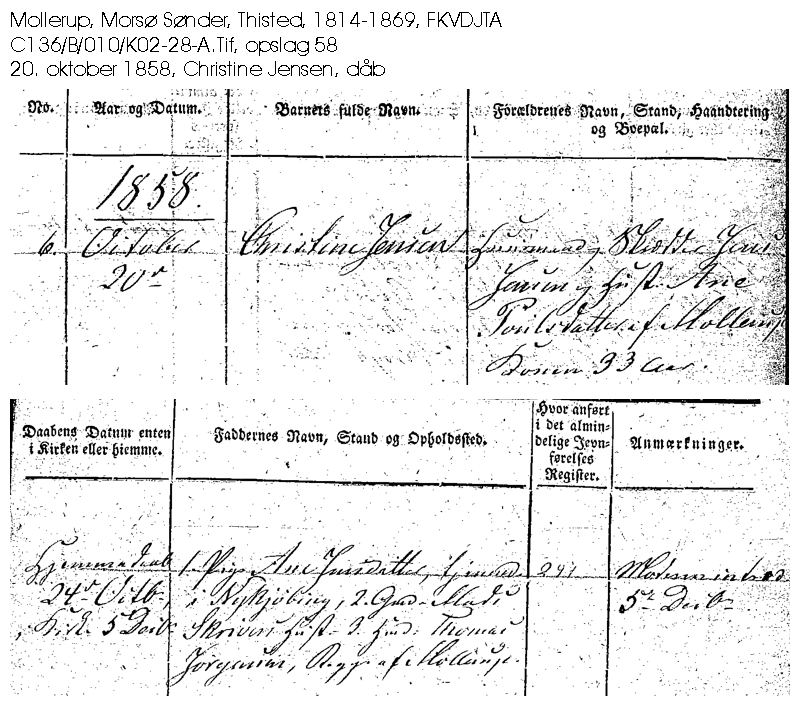 Mollerup, Morsø Sønder, Thisted, 1814-1869, FKVDJTA
C136/B/010/K02-28-A.Tif, opslag 58
20. oktober 1858, Christine Jensen, dåb
No.
Aar og Datum.
Barnets fulde Navn.
Forældrenes Navn, Stand, Haandtering
og Boepæl.
1858.
6.
October
20de
Christine Jensen
Huusmand og Skrædder Jens
Jensen og Hust. Ane
Poulsdatter af Mollerup
Konen 33 Aar.
Daabens Datum enten
i Kirken eller hiemme.
Faddernes Navn, Stand og Opholdssted.
Hvor anført
i det almin-
delige Jevn-
førelses
Register.
Anmærkninger.
Hjemmedaab
24de Octb.,
i Kirk. 5 Decb.
1. Pige Ane Jensdatter, tjenende
i Nykjøbing, 2. Gmd. Mads
Skrivers Hust. 3. Hmd. Thomas
Jørgensen, Begge af Mollerup.
291
Moderen introd.
5te Decb.